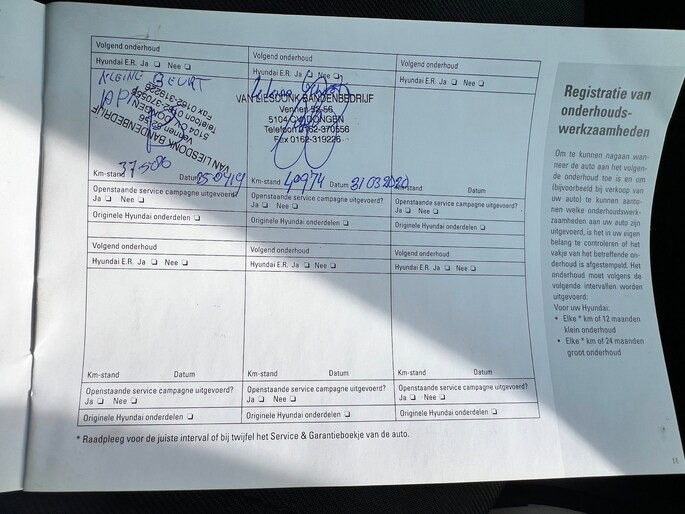 Volgend onderhoud
Hyundai E.R. Ja ❏ Nee ❏
KLEINE BEURT
APK
VAN LIESDONK BANDENBEDRIJF
5104
DONGEN
Telefoon 0162-370556
Fax 0162-319226
37586
25 04 19
Km-stand Datum
Openstaande service campagne uitgevoerd?
Ja ❏ Nee ❏
Originele Hyundai onderdelen ❏
Volgend onderhoud
Hyundai E.R. Ja ❏ Nee ❏
VAN LIESDONK BANDENBEDRIJF
Vennen 52-56
5104 DONGEN
Telefoon 0162-370556
Fax 0162-319226
Km-stand 40974 Datum 31 03 2020
Openstaande service campagne uitgevoerd?
Ja ❏ Nee ❏
Originele Hyundai onderdelen ❏
Volgend onderhoud
Hyundai E.R. Ja ❏ Nee ❏
Km-stand Datum
Openstaande service campagne uitgevoerd?
Ja ❏ Nee ❏
Originele Hyundai onderdelen ❏
Volgend onderhoud
Hyundai E.R. Ja ❏ Nee ❏
Km-stand Datum
Openstaande service campagne uitgevoerd?
Ja ❏ Nee ❏
Originele Hyundai onderdelen ❏
Volgend onderhoud
Hyundai E.R. Ja ❏ Nee ❏
Km-stand Datum
Openstaande service campagne uitgevoerd?
Ja ❏ Nee ❏
Originele Hyundai onderdelen ❏
Volgend onderhoud
Hyundai E.R. Ja ❏ Nee ❏
Km-stand Datum
Openstaande service campagne uitgevoerd?
Ja ❏ Nee ❏
Originele Hyundai onderdelen ❏
* Raadpleeg voor de juiste interval of bij twijfel het Service & Garantieboekje van de auto.
Registratie van
onderhouds-
werkzaamheden
Om te kunnen nagaan wan-
neer de auto aan het volgen-
de onderhoud toe is en om
(bijvoorbeeld bij verkoop van
uw auto) te kunnen aanto-
nen welke onderhoudswerk-
zaamheden aan uw auto zijn
uitgevoerd, is het in uw eigen
belang te controleren of het
vakje van het betreffende on-
derhoud is afgestempeld. Het
onderhoud moet volgens de
volgende intervallen worden
uitgevoerd.
Voor uw Hyundai:
• Elke * km of 12 maanden
klein onderhoud
• Elke * km of 24 maanden
groot onderhoud
11